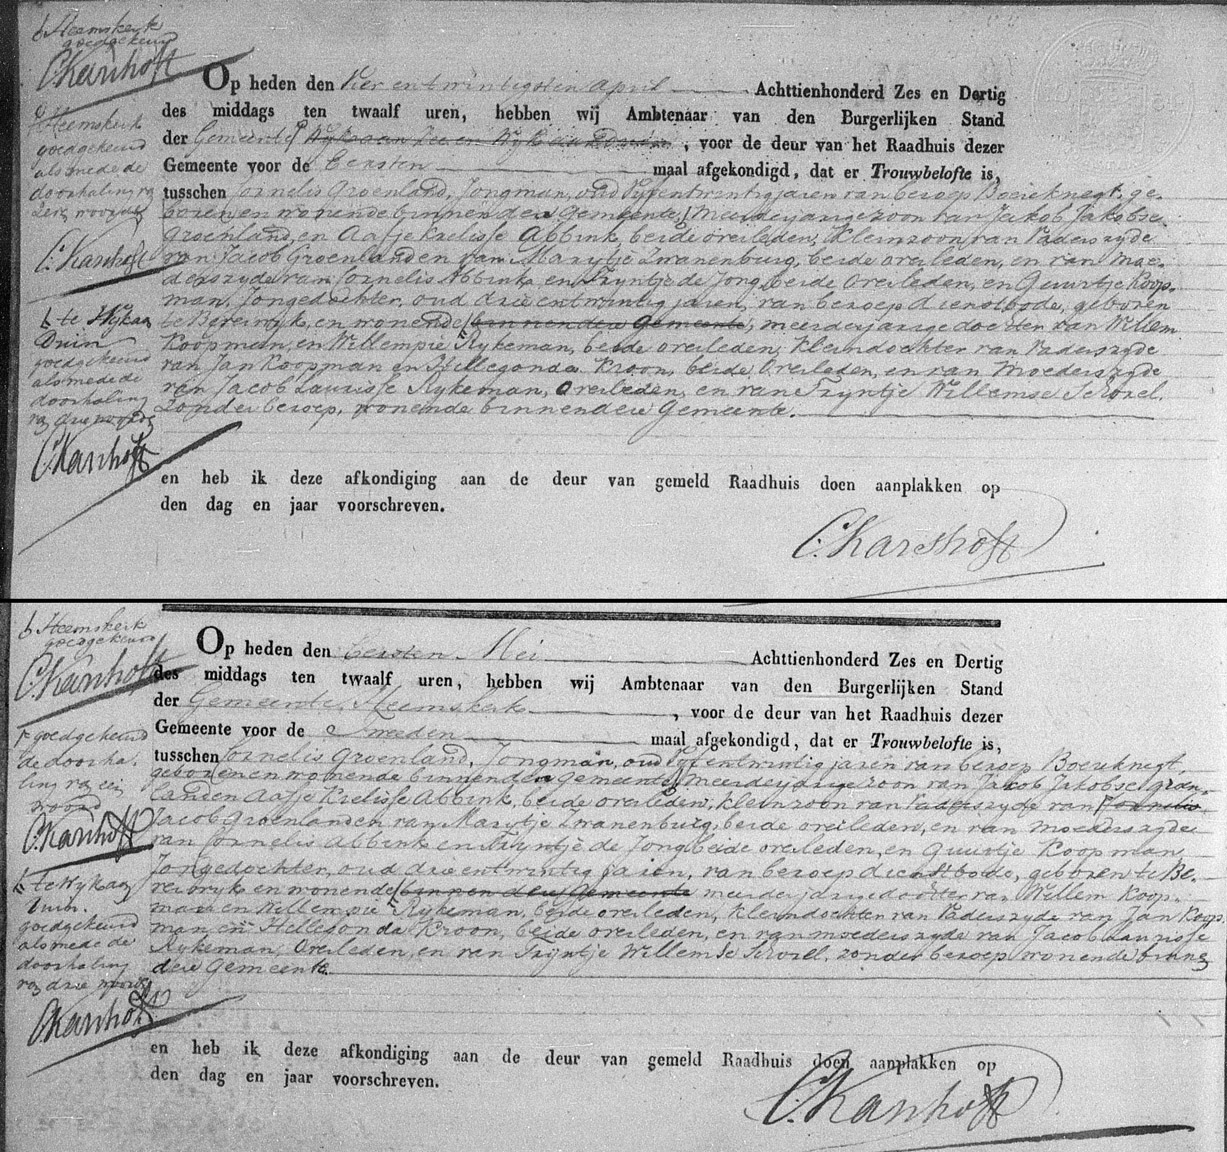 b Heemskerk
goedgekeurd
C: Karshoff
Op heden den Vier en twintigsten April Achttienhonderd Zes en Dertig
des middags ten twaalf uren, hebben wij Ambtenaar van den Burgerlijken Stand
der Gemeente Wijk aan Zee en Wijk aan Duin, voor de deur van het Raadhuis dezer
Gemeente voor de Eersten maal afgekondigd, dat er Trouwbelofte is,
tusschen Cornelis Groenland, Jongman, oud Vyf entwintig jaren van beroep Boereknegt, ge-
boren en wonende binnen deze Gemeente, Meerderjarige zoon van Jakob Jakobse
Groenland, en Aafje Krelisse Abbink, beide overleden, Kleinzoon van Vaders zyde
van Jacob Groenland en van Marytje Zwanenburg, beide overleden, en van Moe-
ders zyde van Cornelis Abbink en Tryntje de Jong, beide Overleden, en Guurtje Koop-
man, Jongedochter, oud drie entwintig jaren, van beroep dienstbode, geboren
te Beverwyk, en wonende binnen deze Gemeente, meerderjarige dochter van Willem
Koopman, en Willempie Rykeman, beide overleden, Kleindochter van Vaders zyde
van Jan Koopman en Hillegonda Kroon, beide Overleden, en van Moeders zyde
van Jacob Laurisse Rykeman, Overleden, en van Tryntje Willemse Schoel.
Zonder beroep, wonende binnen deze Gemeente.
b Heemskerk
goedgekeurd
alsmede de
doorhaling van
woorden
C: Karshoff
b te Wijk aan
Duin
goedgekeurd
alsmede de
doorhaling
van drie woorden
C. Karshoff
en heb ik deze afkondiging aan de deur van gemeld Raadhuis doen aanplakken op
den dag en jaar voorschreven.
C. Karshoff
b Heemskerk
goedgekeurd
C. Karshoff
Op heden den Eersten Mei Achttienhonderd Zes en Dertig
des middags ten twaalf uren, hebben wij Ambtenaar van den Burgerlijken Stand
der Gemeente Heemskerk, voor de deur van het Raadhuis dezer
Gemeente voor de Tweeden maal afgekondigd, dat er Trouwbelofte is,
tusschen Cornelis Groenland, Jongman, oud Vyf entwintig jaren van beroep Boereknegt,
geboren en wonende binnen deze Gemeente, Meerderjarige zoon van Jacob Jakobse Groen-
land en Aafje Krelisse Abbink, beide overleden, Kleinzoon van Vaders zyde van Cornelis
Jacob Groenland en van Marytje Zwanenburg, beide overleden, en van moeders zyde
van Cornelis Abbink en Tryntje de Jong, beide overleden, en Guurtje Koopman,
Jongedochter, oud drie entwintig jaren, van beroep dienstbode, geboren te Be-
verwyk en wonende binnen deze Gemeente meerderjarige dochter van Willem Koop-
man en Willempie Rykeman, beide overleden, Kleindochter van Vaders zyde van Jan Koop-
man en Hillegonda Kroon, beide overleden, en van moeders zyde van Jacob Laurisse
Rykeman, Overleden, en van Tryntje Willemse Schoel, zonder beroep wonende binnen
deze Gemeente.
goedgekeurd
de doorha-
ling van een
woord
C. Karshoff
te Wijk aan
Duin.
goedgekeurd
alsmede de
doorhaling
van drie woorden
C. Karshoff
en heb ik deze afkondiging aan de deur van gemeld Raadhuis doen aanplakken op
den dag en jaar voorschreven.
C. Karshoff